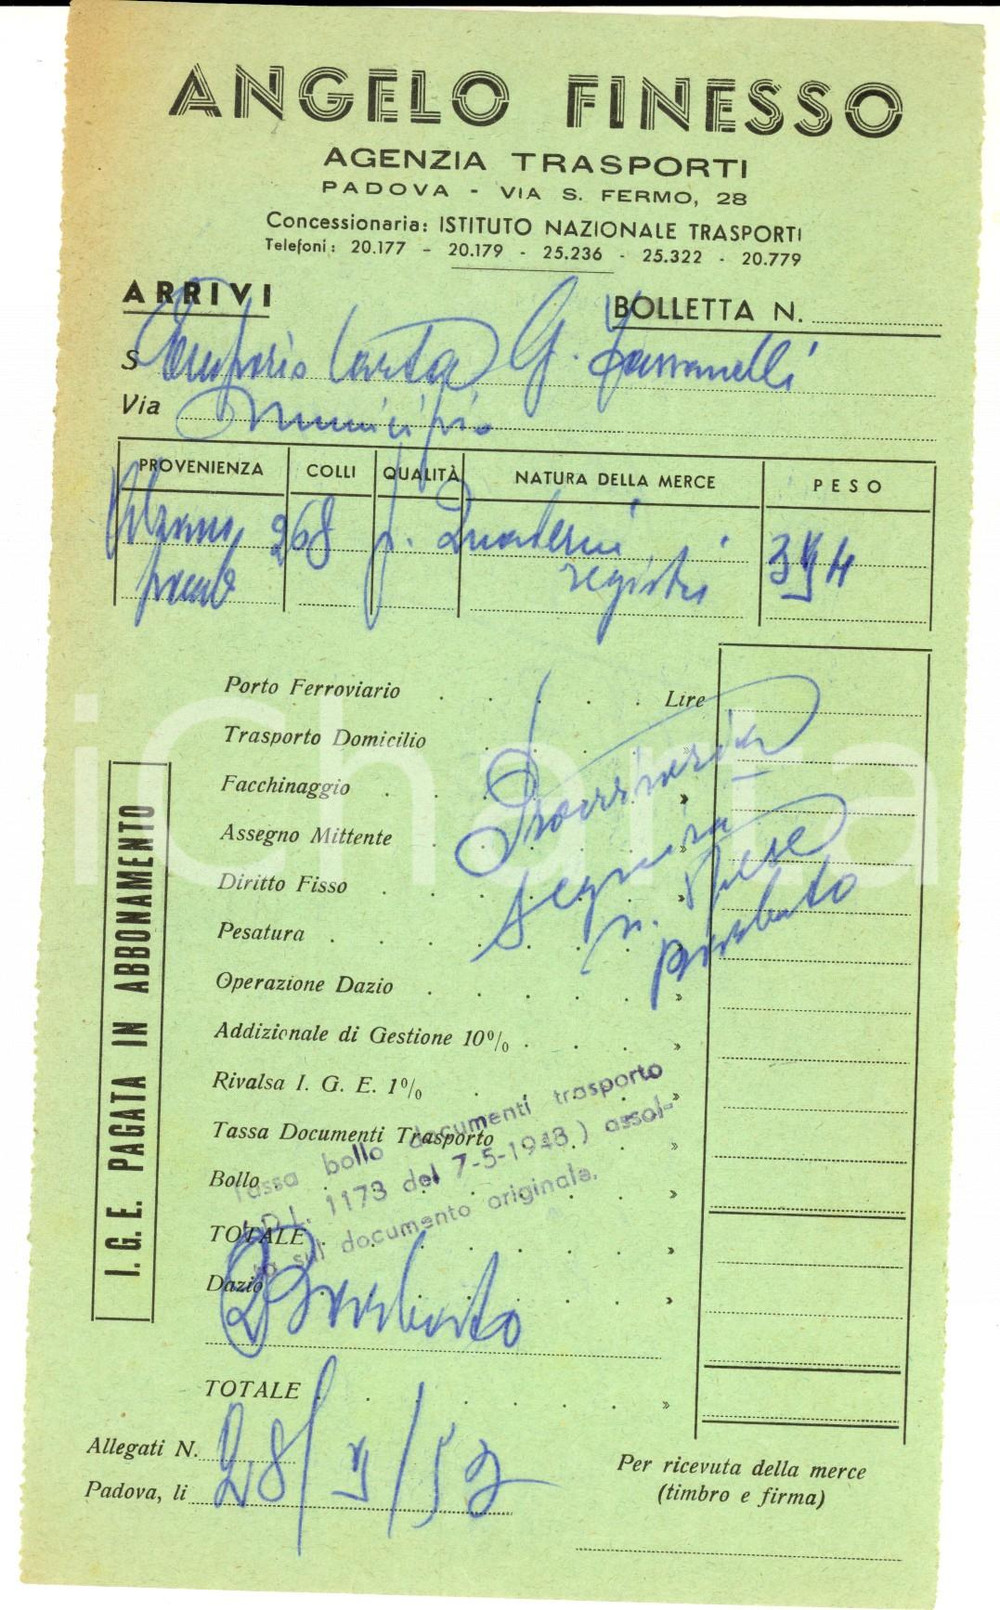 ANGELO FINESSO
AGENZIA TRASPORTI
PADOVA - VIA S. FERMO, 28
Concessionaria: ISTITUTO NAZIONALE TRASPORTI
Telefoni: 20.177 - 20.179 - 25.236 - 25.322 - 20.779
ARRIVI BOLLETTA N.
S Emporio Carta G.
Via Municipio
PROVENIENZA COLLI QUALITÀ NATURA DELLA MERCE PESO
268 Quaderni
registri
Porto Ferroviario Lire
Trasporto Domicilio
Facchinaggio »
Assegno Mittente »
Diritto Fisso »
Pesatura
Operazione Dazio »
Addizionale di Gestione 10% »
Rivalsa I. G. E. 1% »
Tassa Documenti Trasporto »
Bollo »
TOTALE »
Dazio »
TOTALE »
I. G. E. PAGATA IN ABBONAMENTO
segue
Tassa bollo documenti trasporto
D.L. 1173 del 7-5-1948) assol-
ta sul documento originale.
Allegati N.
Padova, li 28/3/52
Per ricevuta della merce
(timbro e firma)
iCharta